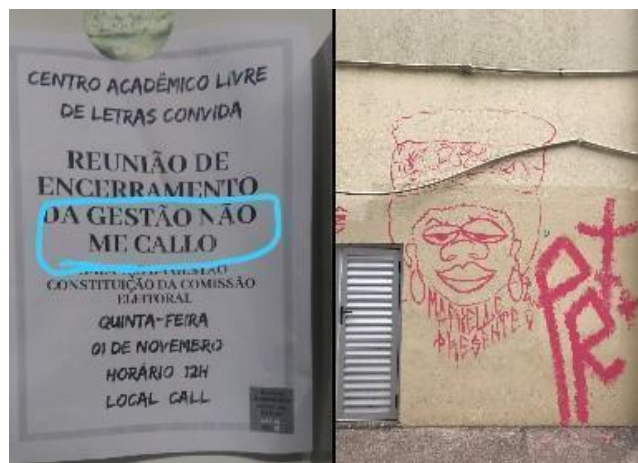 CENTRO ACADÊMICO LIVRE
DE LETRAS CONVIDA
REUNIÃO DE
ENCERRAMENTO
DA GESTÃO NÃO
ME CALLO
CONSTITUIÇÃO DA COMISSÃO
ELEITORAL
QUINTA-FEIRA
01 DE NOVEMBRO
HORÁRIO 12H
LOCAL CALL
MARIELLE
PRESENTE